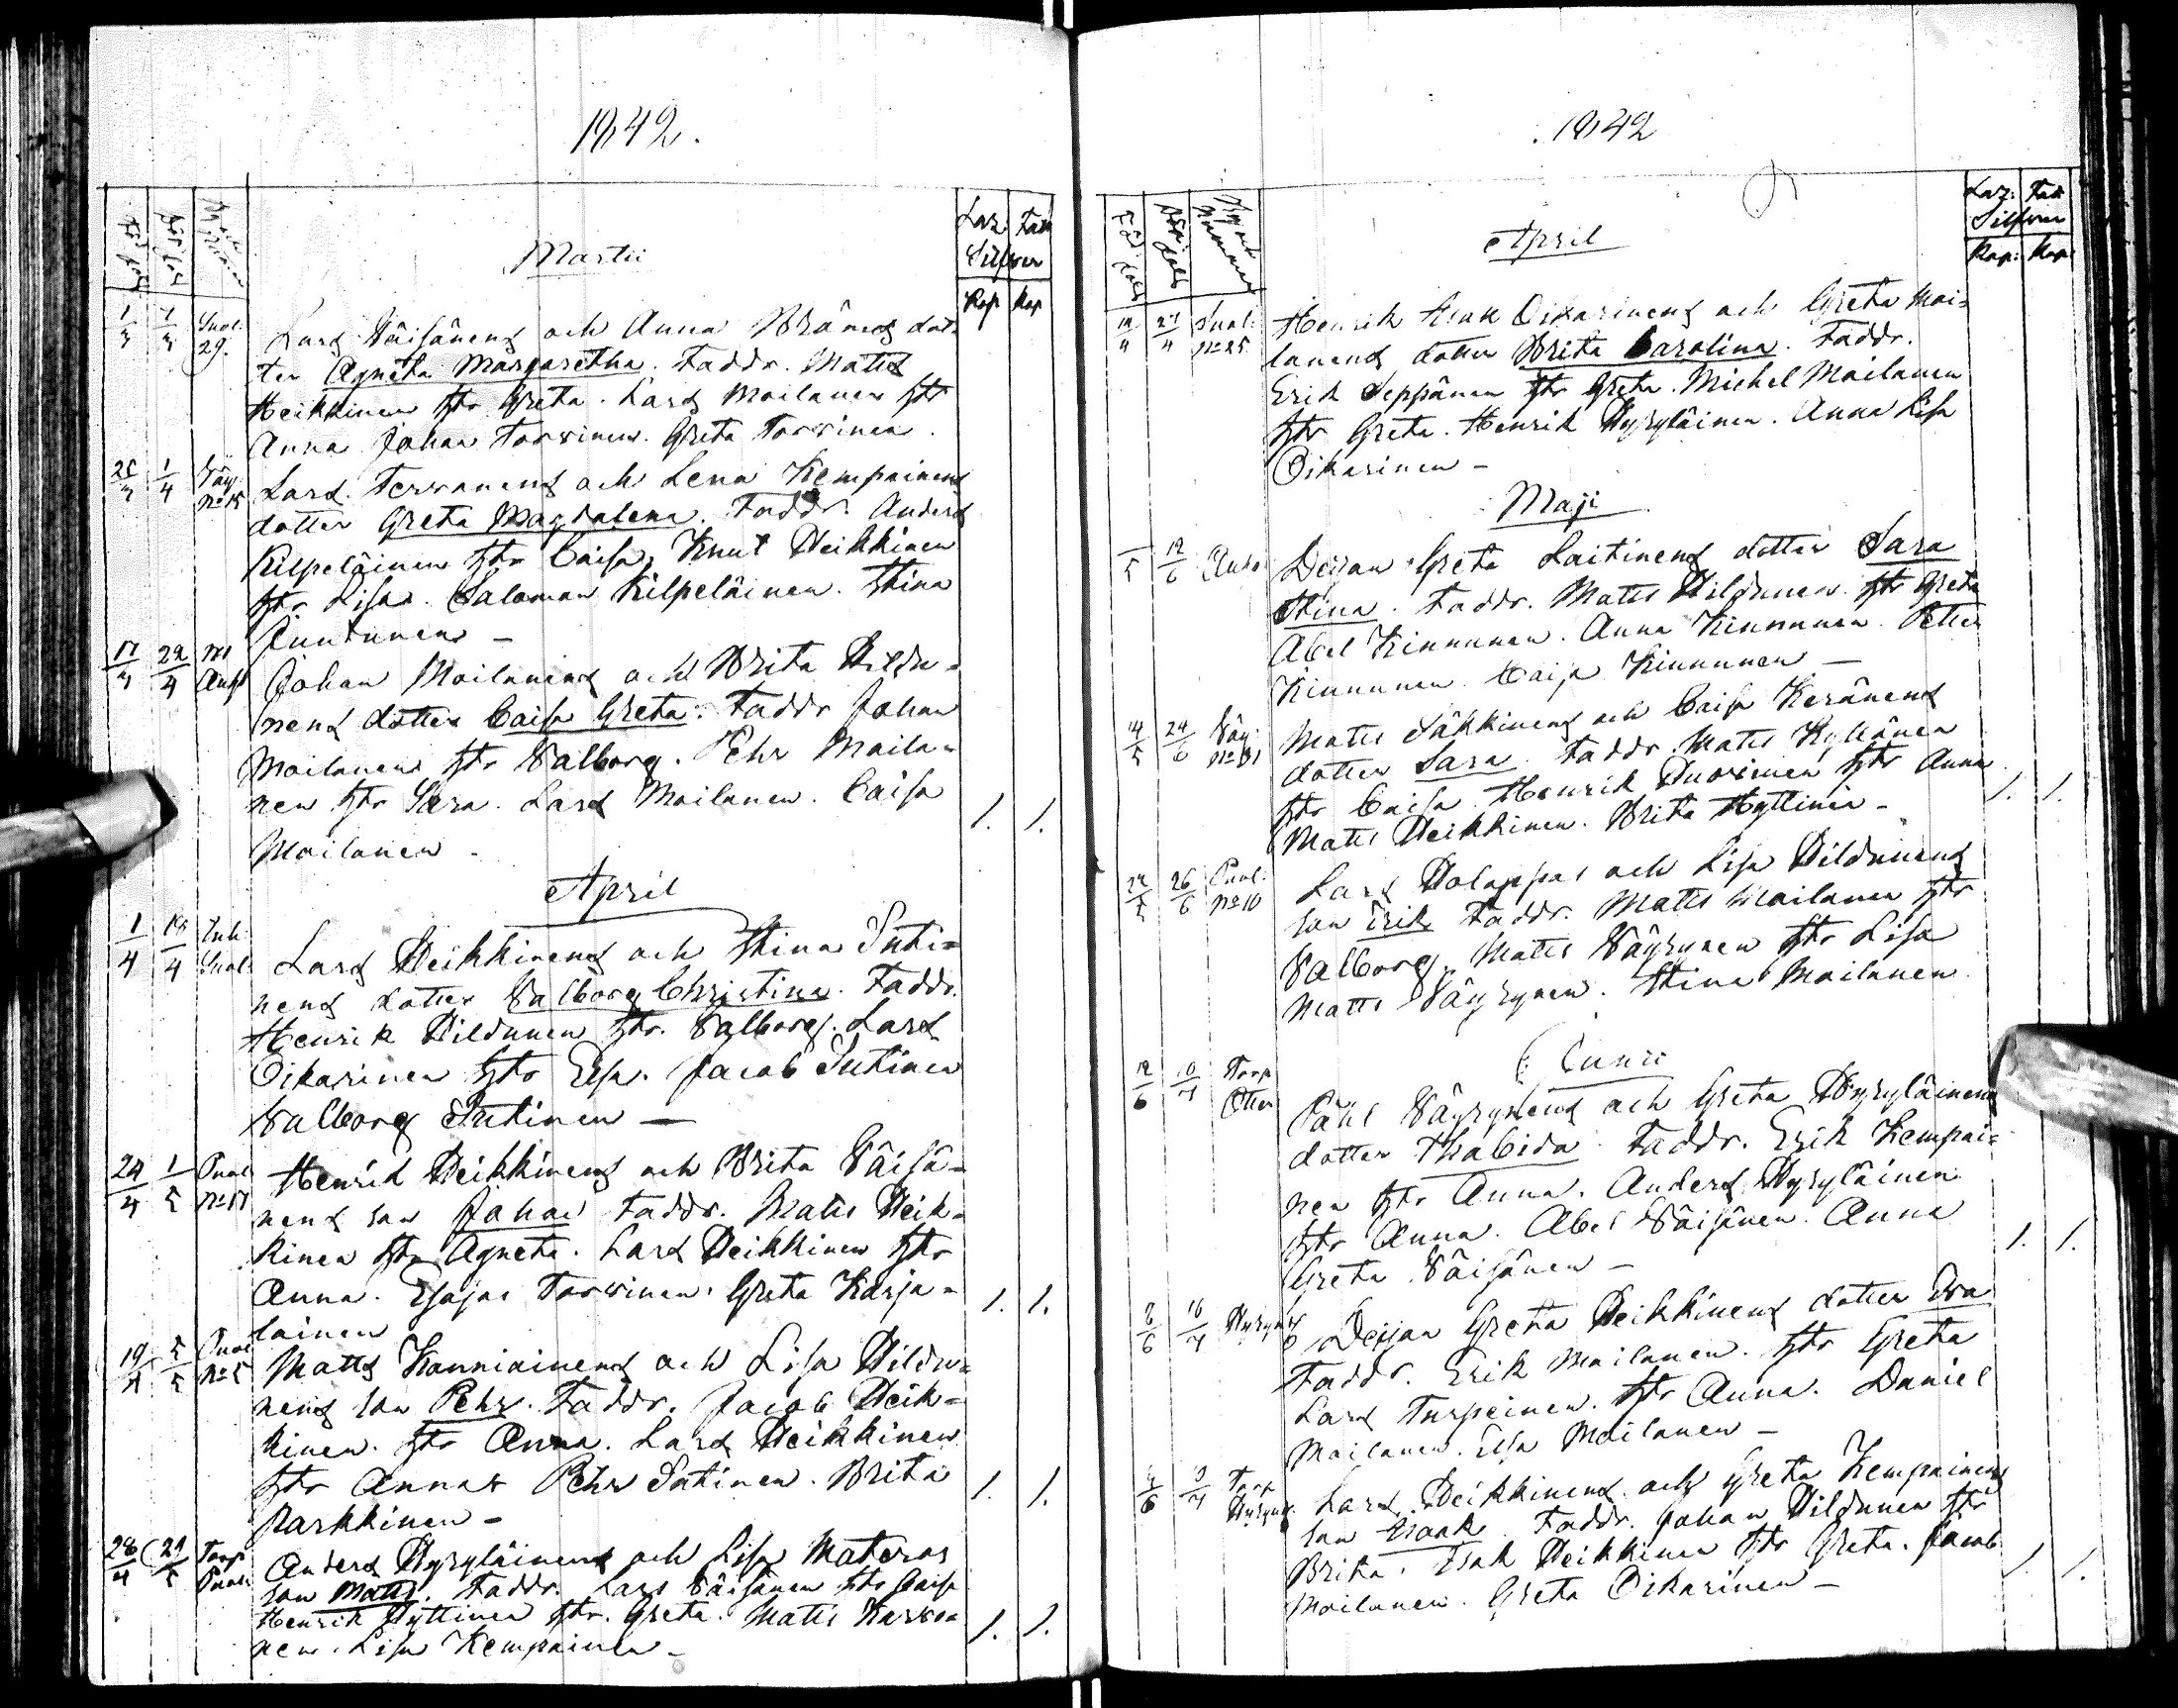 1842.
Född
Döpt
By och Nummer
Martii
Laz: Fatt
Silfver
Kop Kop
1/3 7/3 Suol. 29. Lars Väisänens och Anna Kränes dot-
ter Agneta Margaretha. Faddr. Matts
Heikkinen hstr Greta. Lars Moilanen hstr
Anna. Johan Torvinen. Greta Torvinen.
25/3 1/4 Väy. No 15 Lars Tervonens och Lena Kempainens
dotter Greta Magdalena. Faddr. Anders
Kilpeläinen hstr Caisa, Knut Heikkinen
hstr Lisa. Salomon Kilpeläinen. Stina
Juntunen –
17/3 22/4 Johan Moilanens och Brita Hildu-
nens dotter Caisa Greta. Faddr Johan
Moilanen hstr Valborg. Pehr Moila-
nen hstr Sara. Lars Moilanen. Caisa 1. 1.
Moilanen –
April
1/4 18/4 Inh. Suol. Lars Heikkinens och Stina Tuti-
nens dotter Valborg Christina. Faddr.
Henrik Hildunen hstr. Valborg. Lars
Oikarinen hstr Elsa. Jacob Tutinen
Valborg Tutinen –
24/4 1/5 Puol No 17 Henrik Heikkinens och Brita Väisä-
nens son Johan Faddr. Matts Heik-
kinen hstr Agneta. Lars Heikkinen hstr
Anna. Esajas Torvinen. Greta Karja- 1. 1.
lainen
19/4 5/5 Puol No 5 Matts Kanniainens och Lisa Hildu-
nens son Pehr. Faddr. Jacob Heik-
kinen. hstr Anna. Lars Heikkinen
hstr Anna. Pehr Tutinen. Brita 1. 1.
Parkkinen –
28/4 29/5 Torp Puol. Anders Hyryläinens och Lisa Materos
son Matts. Faddr. Lars Väisänen hstr Caisa
Henrik Hyttinen hstr. Greta. Matts Karvo- 1. 1.
nen. Lisa Kempainen –
1842
Född
Döpt
By och Nummer
April
Laz: Fatt
Silfver
Kop: Kop:
19/4 24/4 Suol: No 25. Henrik Esak Oikarinens och Greta Moi-
lanens dotter Brita Carolina. Faddr.
Erik Seppänen hstr Greta. Michel Moilanen
hstr Greta. Henrik Hyryläinen. Anna Lisa
Oikarinen –
Maji
/5 12/6 Deijan Greta Laitinens dotter Sara
Stina. Faddr. Matts Hildunen hstr Greta
Abel Kinnunen. Anna Kinnunen. Petter
Kinnunen. Caisa Kinnunen –
14/5 24/6 Väy: No 31 Matts Säkkinens och Caisa Keränens
dotter Sara. Faddr. Matts Kyllönen
hstr Caisa. Henrik Tuovinen hstr Anna
Matts Heikkinen. Brita Hyttinen – 1. 1.
22/5 26/6 Puol: No 10 Lars Holappas och Lisa Hildunens
son Erik Faddr. Matts Moilanen hstr
Valborg. Matts Väyrynen hstr Lisa
Matts Väyrynen. Stina Moilanen
Junii
12/6 10/7 Torp Påhl Väyrynens och Greta Hyryläinens
dotter Thabida. Faddr. Erik Kempai-
nen hstr Anna. Anders Hyryläinen
hstr Anna. Abel Väisänen. Anna 1. 1.
Greta Väisänen –
8/6 10/7 Hyryns Deijan Greta Heikkinens dotter Eva
Faddr. Erik Moilanen. hstr Greta
Lars Turpeinen. hstr Anna. Daniel
Moilanen. Elsa Moilanen –
4/6 3/7 Torp Hyryns. Lars Heikkinens och Greta Kempainens
son Esaak. Faddr. Johan Hildunen hstr
Brita. Esak Heikkinen hstr Greta. Jacob 1. 1.
Moilanen. Greta Oikarinen –